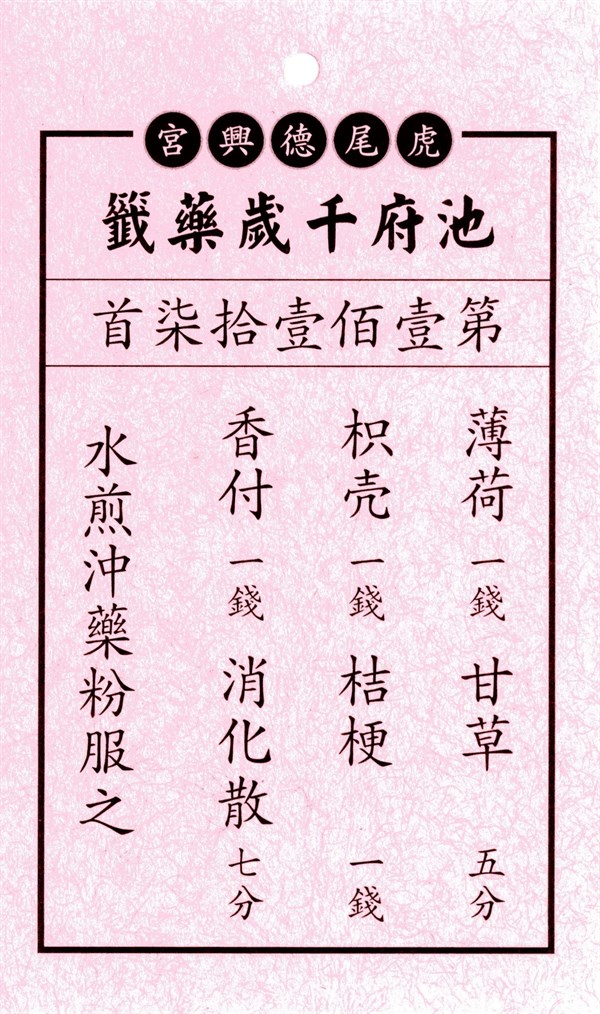 虎尾德興宮
池府千歲藥籤
第壹佰壹拾柒首
薄荷一錢 甘草五分
枳壳一錢 桔梗一錢
香付一錢 消化散七分
水煎沖藥粉服之